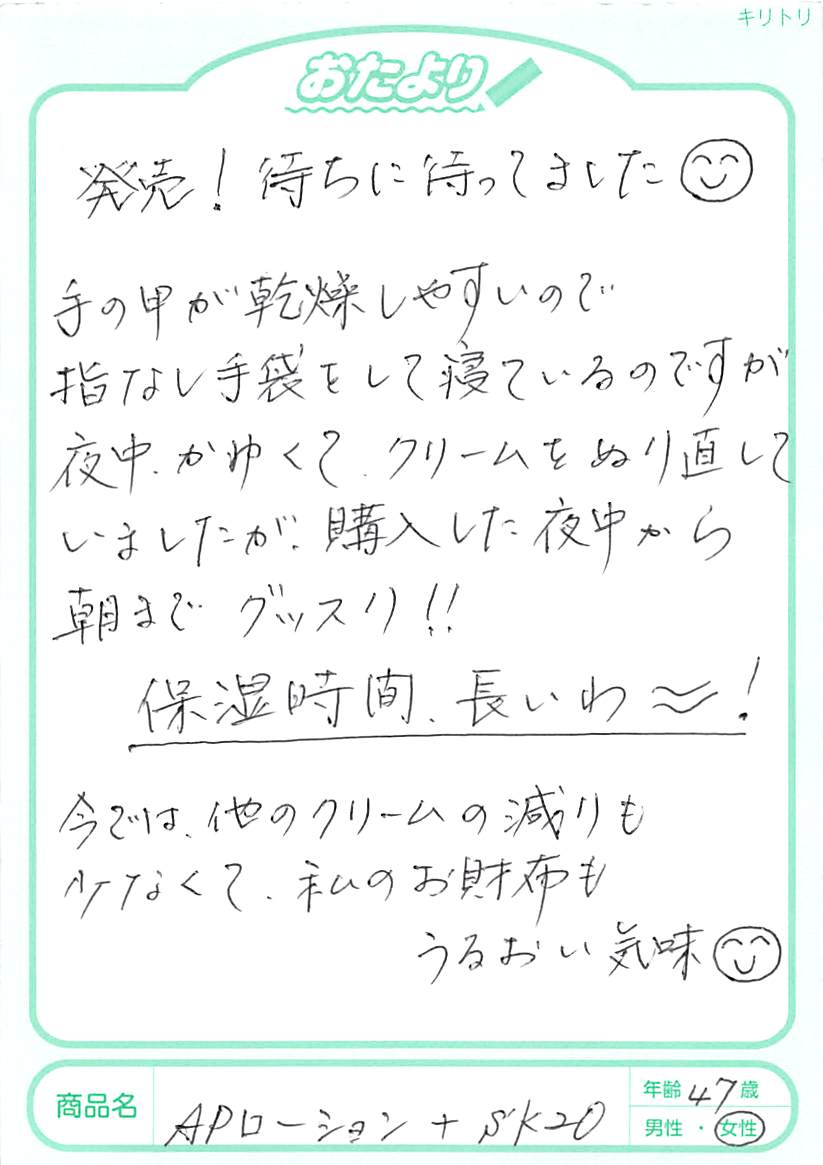 キリトリ
おたより
発売！待ちに待ってました
手の甲が乾燥しやすいので
指なし手袋をして寝ているのですが
夜中、かゆくて、クリームをぬり直して
いましたが、購入した夜中から
朝まで グッスリ!!
保湿時間、長いわ〜！
今では、他のクリームの減りも
少なくて、私のお財布も
うるおい気味
商品名
APローション + SK20
年齢 47 歳
男性 ・ 女性